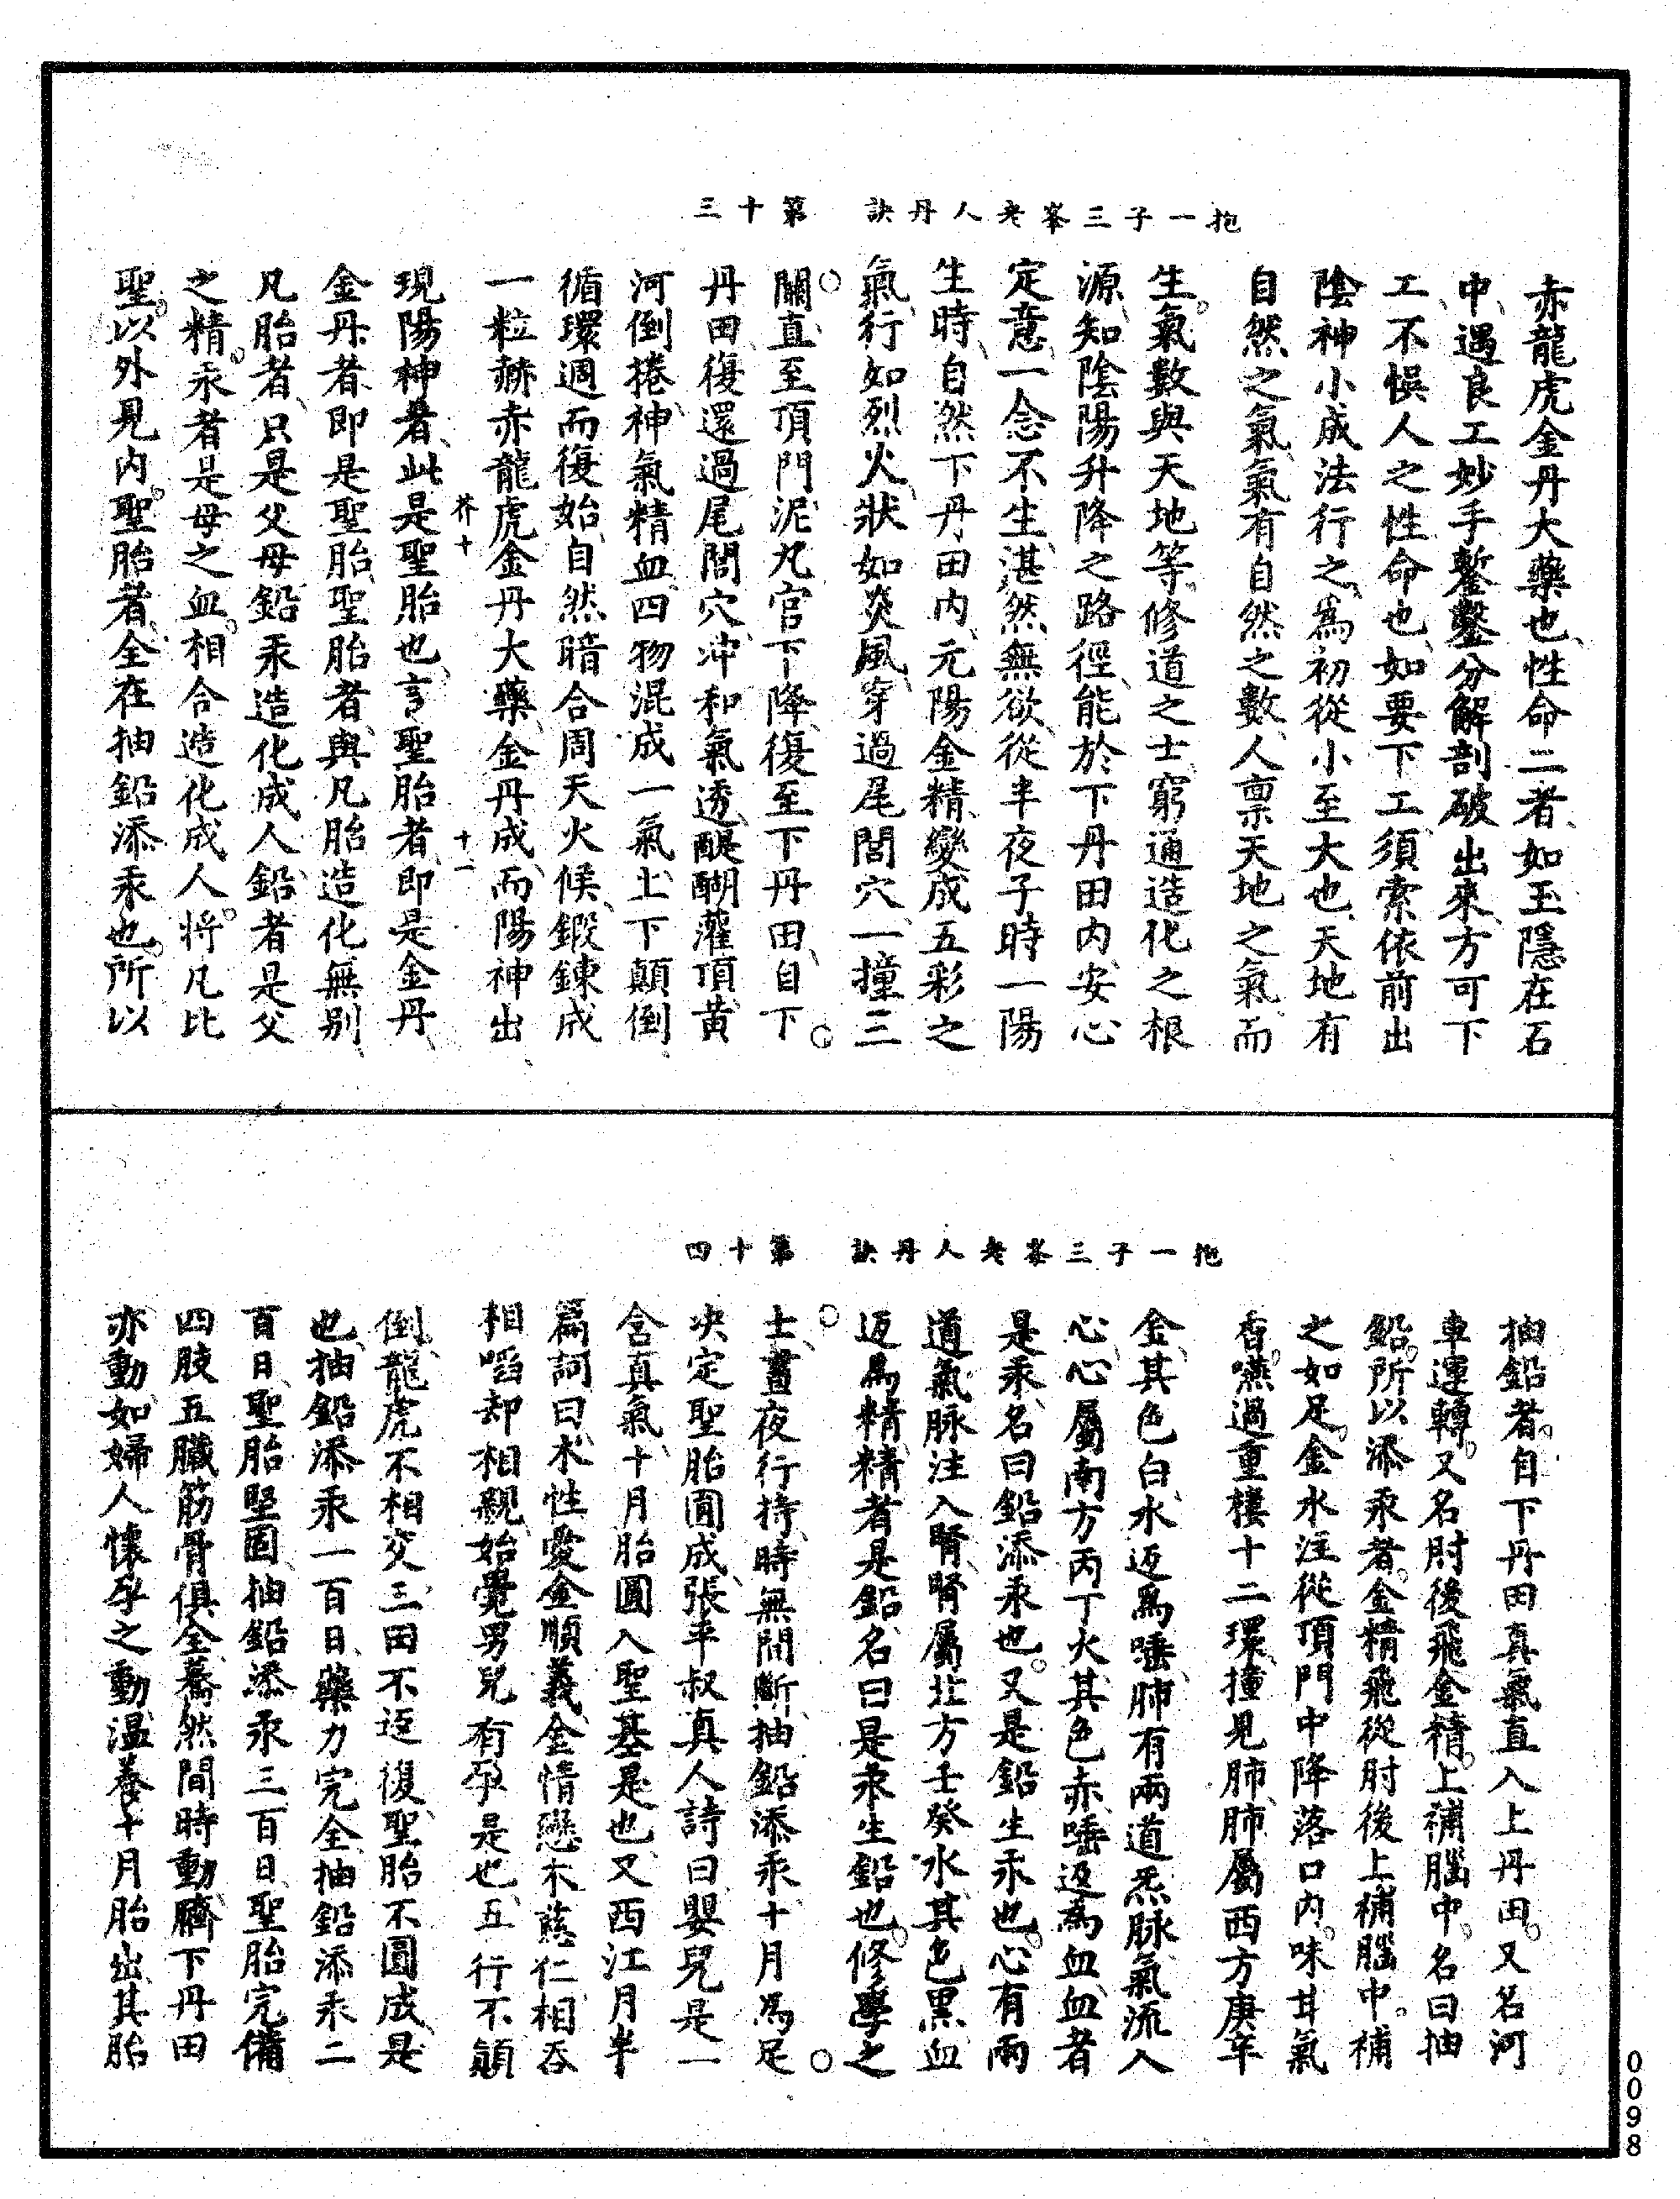 抱一子三峯老人丹訣　第十三
赤龍虎金丹大藥也性命二者如玉隱在石
中遇良工妙手鑿鑿分解剖破出來方可下
工不悞人之性命也如要下工須索依前出
陰神小成法行之為初從小至大也天地有
自然之氣氣有自然之數人禀天地之氣而
生氣數與天地等修道之士窮通造化之根
源知陰陽升降之路徑能於下丹田內安心
定意一念不生湛然無欲從半夜子時一陽
生時自然下丹田內元陽金精變成五彩之
氣行如烈火狀如炎風穿過尾閭穴一撞三
關直至頂門泥丸宮下降復至下丹田自下
丹田復還過尾閭穴沖和氣透醍醐灌頂黃
河倒捲神氣精血四物混成一氣上下顛倒
循環週而復始自然暗合周天火候鍛鍊成
一粒赫赤龍虎金丹大藥金丹成而陽神出
芥十　十二
現陽神者此是聖胎也言聖胎者即是金丹
金丹者即是聖胎聖胎者與凡胎造化無别
凡胎者只是父母鉛汞造化成人鉛者是父
之精汞者是母之血相合造化成人將凡比
聖以外見內聖胎者全在抽鉛添汞也所以
抱一子三峯老人丹訣　第十四
抽鉛者自下丹田真氣直入上丹田又名河
車運轉又名肘後飛金精上補腦中名曰抽
鉛所以添汞者金精飛從肘後上補腦中補
之如足金水注從頂門中降落口內味甘氣
香嚥過重樓十二環撞見肺肺屬西方庚辛
金其色白水迈為唾肺有兩道炁脉氣流入
心心屬南方丙丁火其色赤唾迈為血血者
是汞名曰鉛添汞也又是鉛生汞也心有兩
道氣脉注入腎腎屬北方壬癸水其色黑血
迈為精精者是鉛名曰是汞生鉛也修學之
士晝夜行持時無間斷抽鉛添汞十月為足
决定聖胎圓成張平叔真人詩曰嬰兒是一
含真氣十月胎圓入聖基是也又西江月半
篇詞曰木性愛金順義金情戀木慈仁相吞
相啗却相親始覺男兒有孕是也五行不顛
倒龍虎不相交三田不迈復聖胎不圓成是
也抽鉛添汞一百日藥力完全抽鉛添汞二
百日聖胎堅固抽鉛添汞三百日聖胎完備
四肢五臟筋骨俱全驀然間時動臍下丹田
亦動如婦人懷孕之動溫養十月胎出其胎
0098